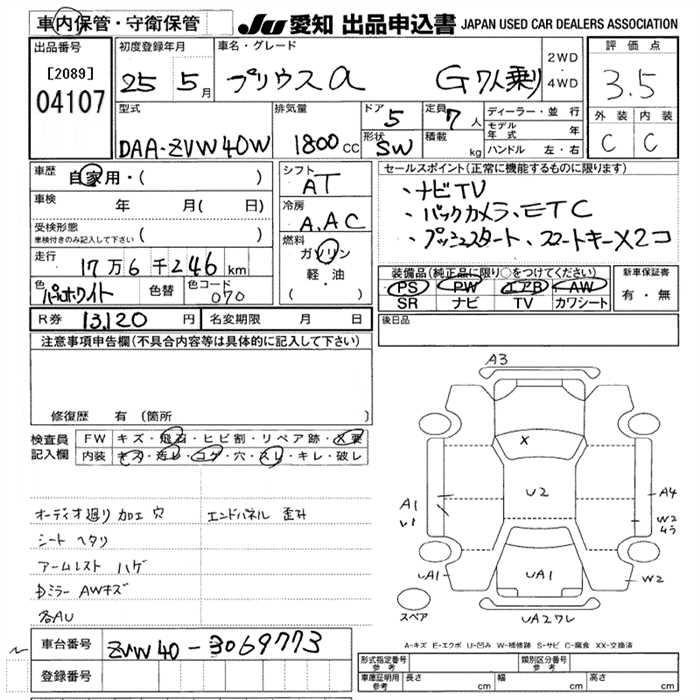 車内保管・守衛保管
JU 愛知 出品申込書 JAPAN USED CAR DEALERS ASSOCIATION
出品番号
[2089]
04107
初度登録年月
25 5月
車名・グレード
プリウスα G 7人乗り
2WD
・
4WD
評価点
3.5
外装 内装
C C
型式
DAA-ZVW40W
排気量
1800cc
ドア
5
形状
SW
定員
7人
積載
kg
ディーラー・並行
モデル年式 年
ハンドル 左・右
車歴
自家用・( )
車検 年 月( 日)
受検形態
車検付きのみ記入して下さい ( )
走行
17万6千246km
色
パールホワイト
色替
色コード
070
シフト
AT
冷房
A.AC
燃料
ガソリン
軽・油
( )
セールスポイント(正常に機能するものに限ります)
・ナビTV
・バックカメラ、ETC
・プッシュスタート、スマートキーX2コ
装備品(純正品に限り○をつけてください)
PS PW エアB AW
SR ナビ TV カワシート
新車保証書
有・無
R券 13,120円
名変期限 月 日
後日品
注意事項申告欄(不具合内容等は具体的に記入して下さい)
修復歴 有(箇所 )
検査員記入欄
FW キズ・飛石・ヒビ割・リペア跡・X要
内装 キズ・汚レ・コゲ・穴・スレ・キレ・破レ
オーディオ廻り加工 穴
エンドパネル 歪み
シート ヘタリ
アームレスト ハゲ
ドミラー AWキズ
各AU
車台番号 ZVW40-3069773
登録番号
A3
X
U2
A1
A4
W2
UA1
UA1
W2
UA2ワレ
スペア
A-キズ E-エクボ U-凹み W-補修跡 S-サビ C-腐食 XX-交換済
形式指定番号
参考
類別区分番号
参考
車庫証明用
参考
長さ cm 幅 cm 高さ cm